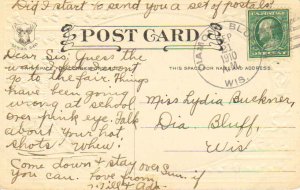 Did I start to send you a set of postals?
POST CARD
THIS SPACE FOR
Dear Sis: Guess the
weans won't
go to the fair. Things
have been going
wrong at school
over pink eye. Talk
about your hot
shots. Whew!
Come down & stay over Sun. if
you can. Love from
DIAMOND BLUFF
SEP
1910
WIS.
Miss Lydia Buckner,
Dia. Bluff,
Wis